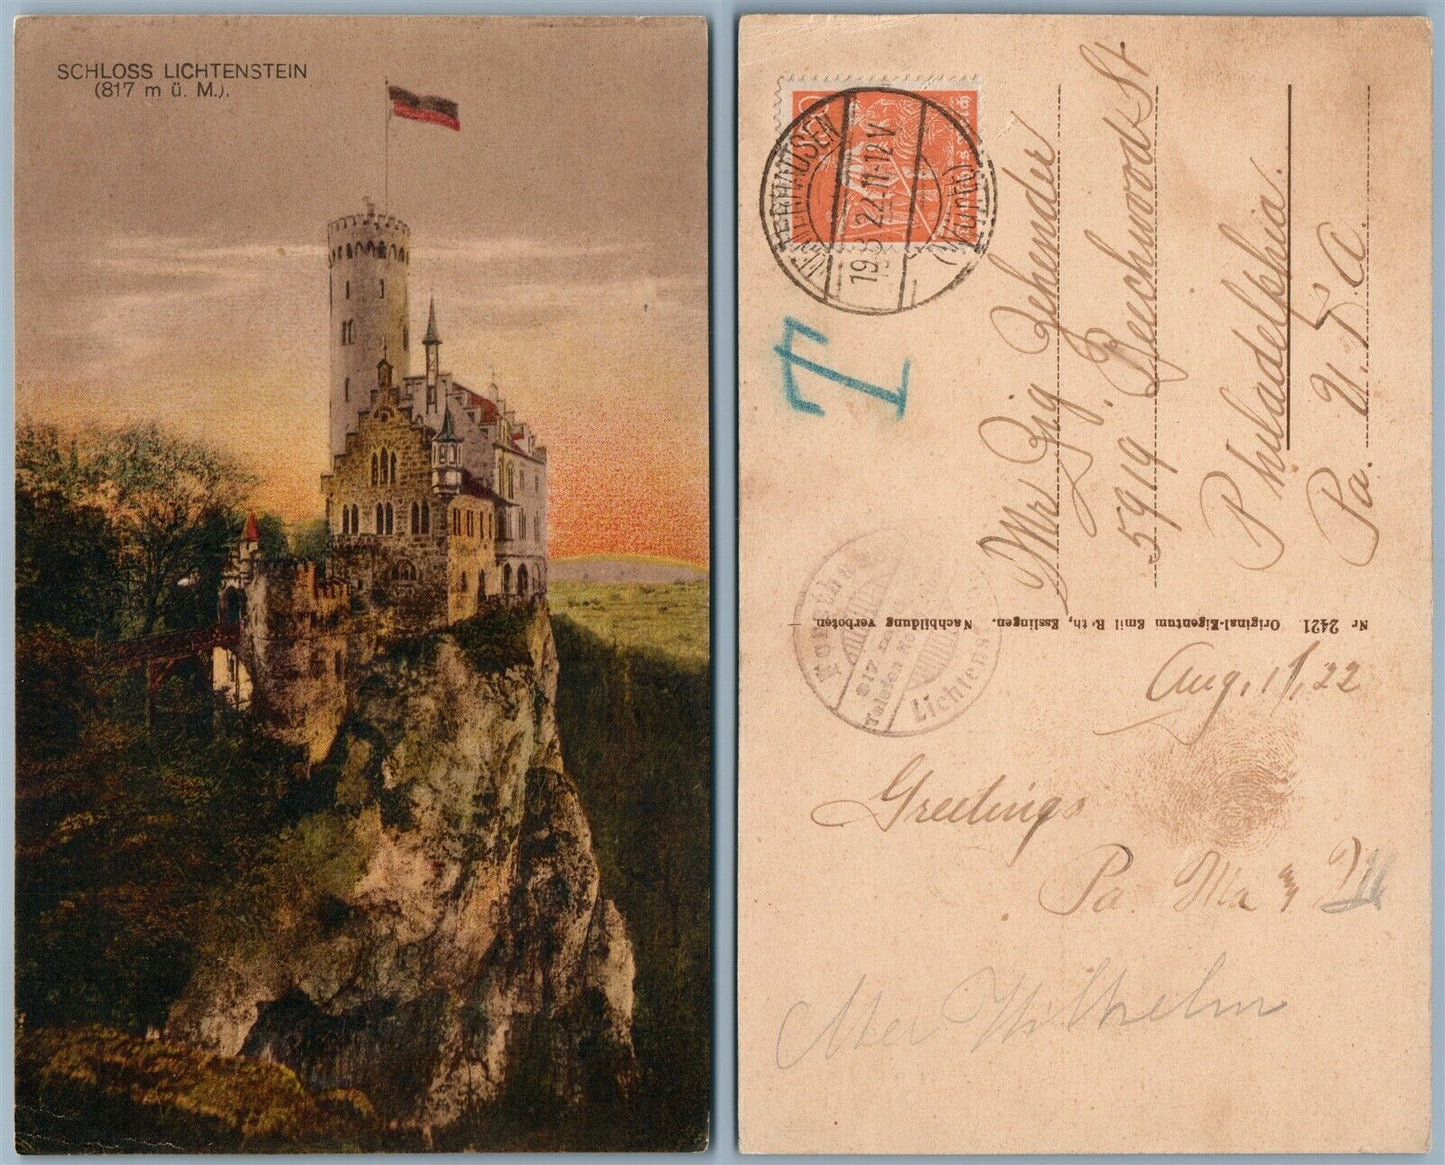 SCHLOSS LICHTENSTEIN
(817 m ü. M.).
19.8.22.11-12 V
(Württ)
T
Mr Zehender
5919 Beechwood St
Philadelphia.
Pa. U.S.A.
Nr 2421. Original-Eigentum Emil R th, Esslingen. Nachbildung verboten.
817 m
Telefon
Lichtenst
Aug, 11, 22
Greetings
Pa. Ma
Wilhelm